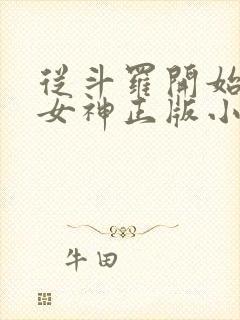 從斗羅開始
女神正版小
牛田